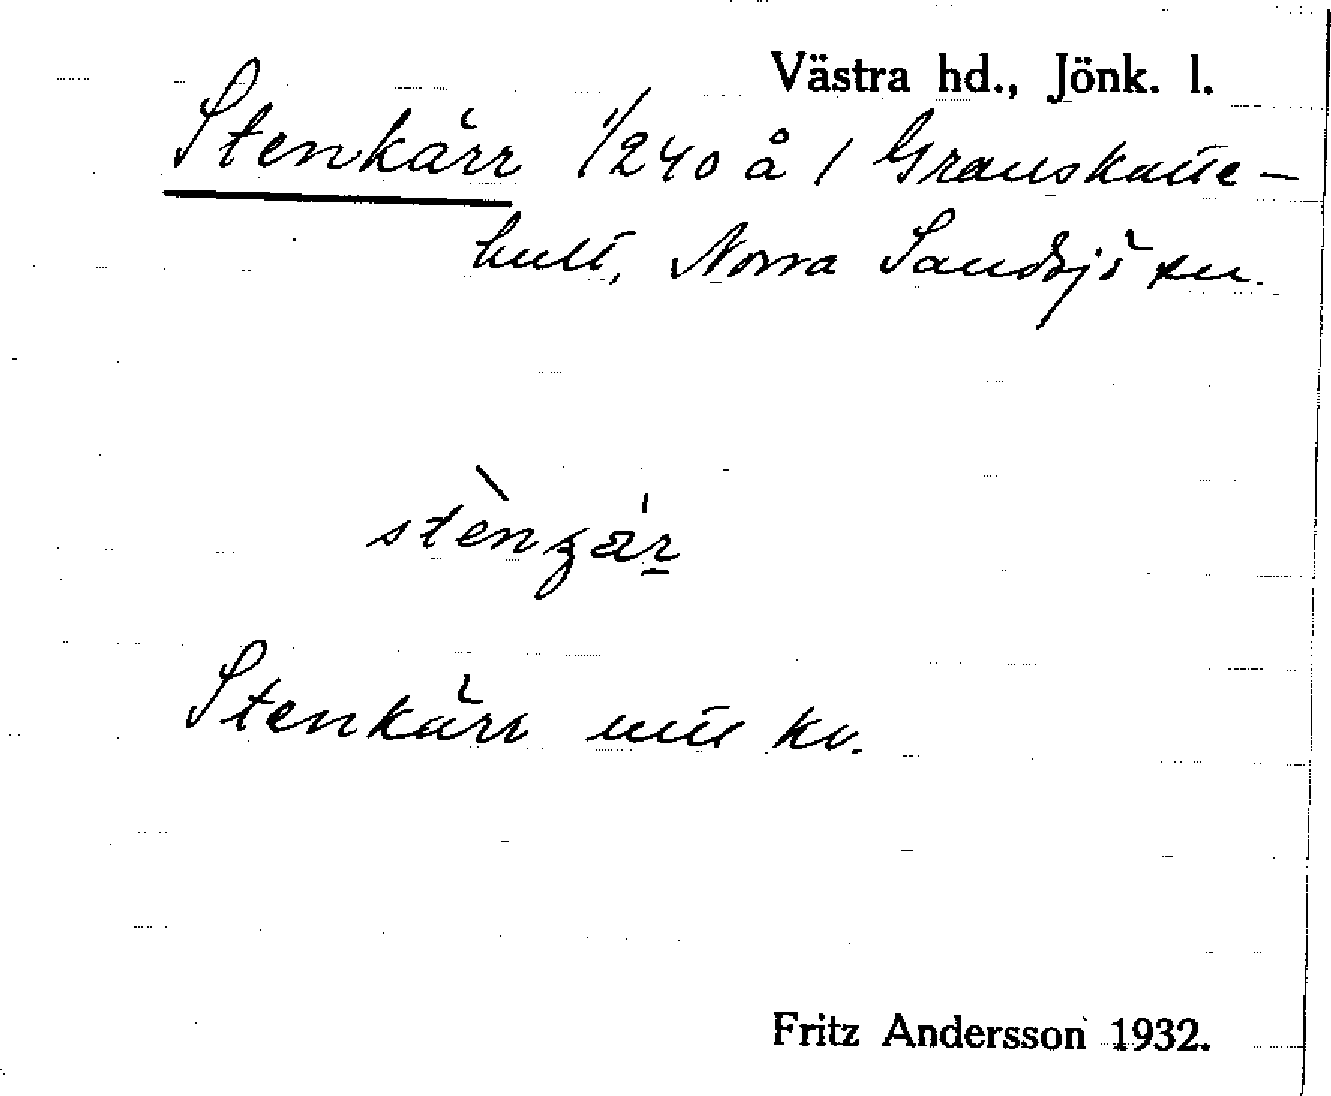 Västra hd., Jönk. l.
Stenkärr 1/240 å 1 Granskatte-
hult, Norra Sandsjö sn.
Stenkärr mtl kv.
Fritz Andersson 1932.